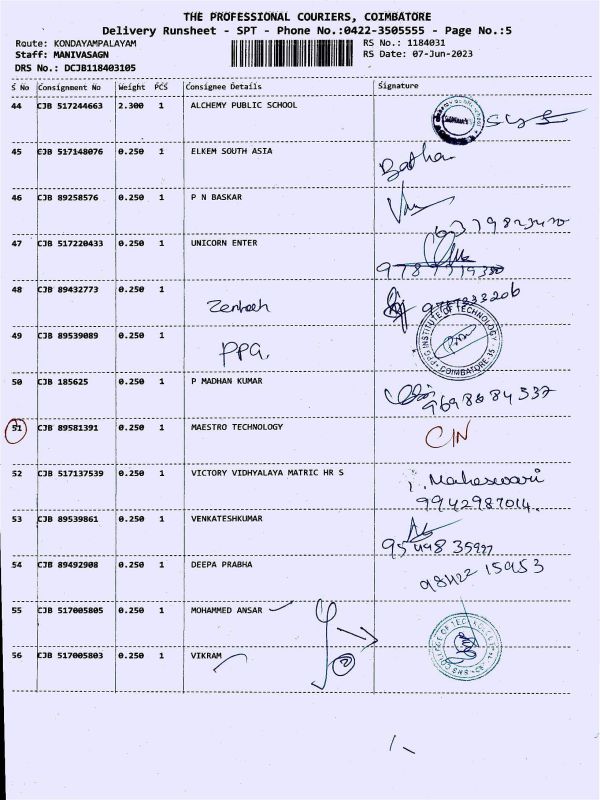 THE PROFESSIONAL COURIERS, COIMBATORE
Delivery Runsheet - SPT - Phone No.:0422-3505555 - Page No.:5
Route: KONDAYAMPALAYAM RS No.: 1184031
Staff: MANIVASAGN RS Date: 07-Jun-2023
DRS No.: DCJB118403105
S No Consignment No Weight PCS Consignee Details Signature
44 CJB 517244663 2.300 1 ALCHEMY PUBLIC SCHOOL
45 CJB 517148076 0.250 1 ELKEM SOUTH ASIA
46 CJB 89258576 0.250 1 P N BASKAR
47 CJB 517220433 0.250 1 UNICORN ENTER
48 CJB 89432773 0.250 1
49 CJB 89539089 0.250 1 PPG. PPG INSTITUTE OF TECHNOLOGY COIMBATORE-35
50 CJB 185625 0.250 1 P MADHAN KUMAR
51 CJB 89581391 0.250 1 MAESTRO TECHNOLOGY C/N
52 CJB 517137539 0.250 1 VICTORY VIDHYALAYA MATRIC HR S i. Maheswari
9942987014.
53 CJB 89539861 0.250 1 VENKATESHKUMAR
54 CJB 89492908 0.250 1 DEEPA PRABHA 98422 15953
55 CJB 517005805 0.250 1 MOHAMMED ANSAR
56 CJB 517005803 0.250 1 VIKRAM 2